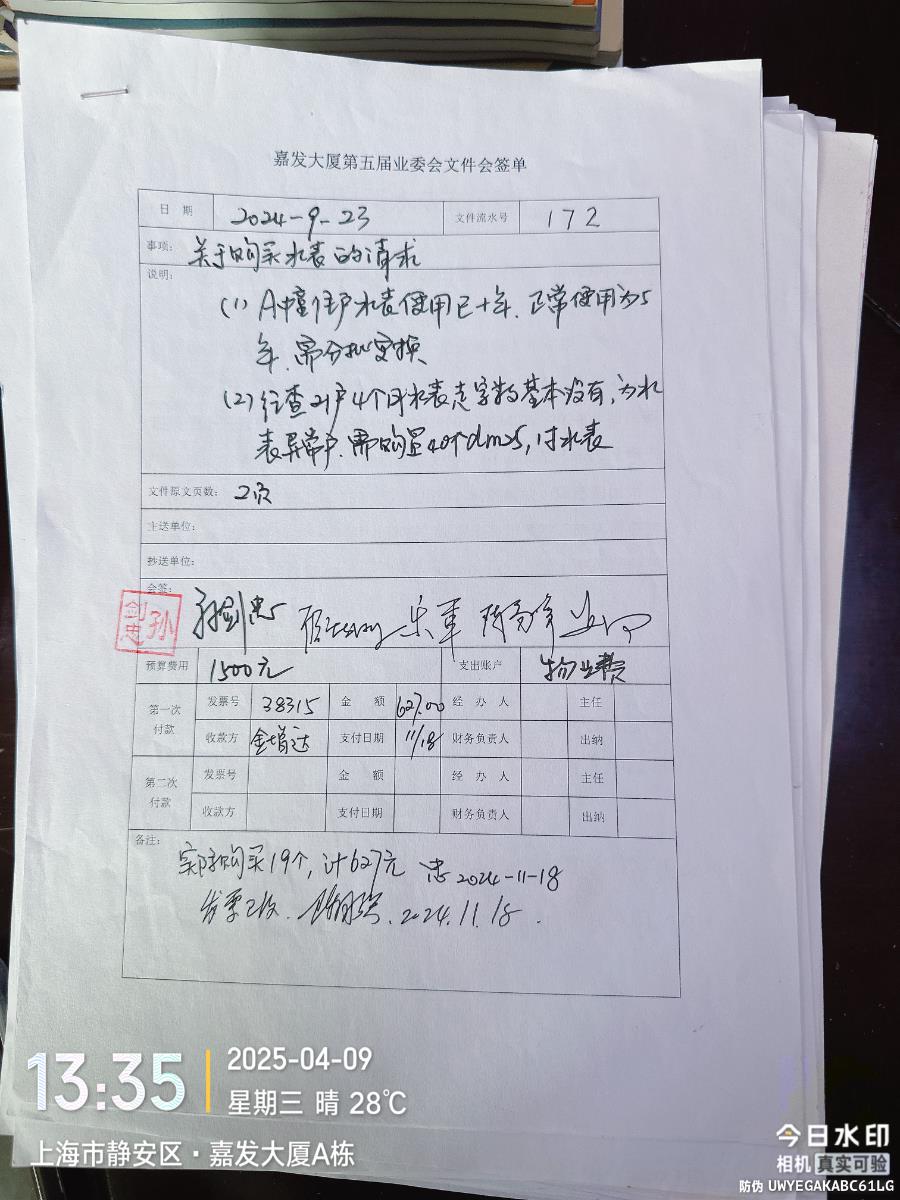 嘉发大厦第五届业委会文件会签单
日 期 2024-9-23 文件流水号 172
事项: 关于购买水表的请求
说明:
(1) A幢住户水表使用已十年、正常使用为5
年、需分批更换
(2) 经查21户4个月水表走字数基本没有,为水
表异常户、需购置40个dm25,寸水表
文件原文页数: 2页
主送单位:
抄送单位:
会签:
孙剑忠
孙剑忠 宋军
预算费用 1500元 支出账户 物业费
第一次付款 发票号 38315 金 额 627.00 经 办 人 主任
收款方 金增达 支付日期 11/18 财务负责人 出纳
第二次付款 发票号 金 额 经 办 人 主任
收款方 支付日期 财务负责人 出纳
备注:
实际购买19个,计627元 忠 2024-11-18
发票已收、 2024.11.18.
13:35
2025-04-09
星期三 晴 28℃
上海市静安区·嘉发大厦A栋
今日水印
相机 真实可验
防伪 UWYEGAKABC61LG